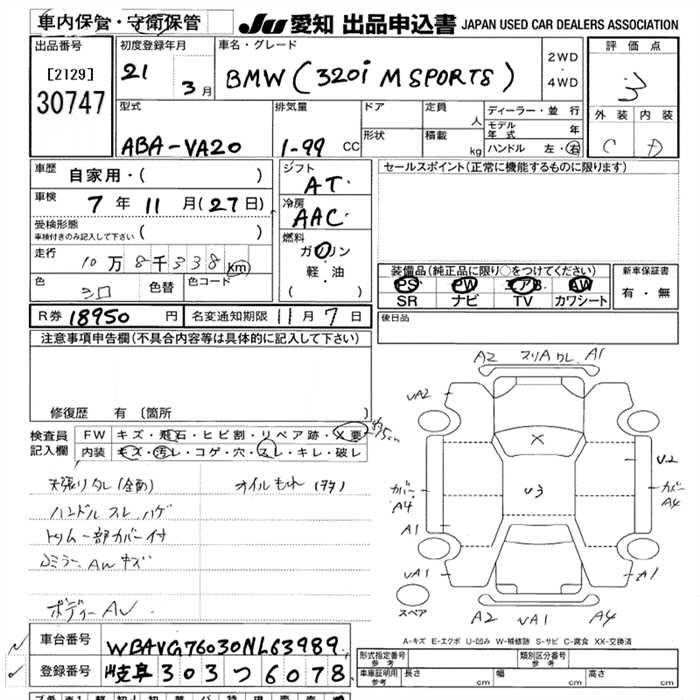 車内保管・守衛保管
JU 愛知 出品申込書 JAPAN USED CAR DEALERS ASSOCIATION
出品番号
[2129]
30747
初度登録年月
21
3月
車名・グレード
BMW (320i M SPORTS)
2WD
・
4WD
評価点
3
外装 内装
C D
型式
ABA-VA20
排気量
1-99 CC
ドア
形状
定員
人
積載
kg
ディーラー・並行
モデル年式 年
ハンドル 左・右
車歴
自家用・( )
車検
7年11月(27日)
受検形態
車検付きのみ記入して下さい ( )
走行
10万8千338km
色
シロ
色替
色コード
シフト
AT
冷房
AAC
燃料
ガソリン
軽・油
( )
セールスポイント(正常に機能するものに限ります)
装備品(純正品に限り○をつけてください)
PS PW エアB AW
SR ナビ TV カワシート
新車保証書
有・無
後日品
R券 18950円
名変通知期限 11月7日
注意事項申告欄(不具合内容等は具体的に記入して下さい)
修復歴 有(箇所 )
検査員
記入欄
FW キズ・飛石・ヒビ割・リペア跡・X要
内装 キズ・汚レ・コゲ・穴・スレ・キレ・破レ
天張りタレ(全面)
オイルもれ(プタ)
ハンドル スレ ハゲ
トリム一部カバー付
ミラー AW キズ
ボディー AW
A2 スリA ワレ A1
UA2
U2
カバー
A4
カバー
A4
A1
U3
UA1
A1
スペア
A2 UA1 A4
A-キズ E-エクボ U-凹み W-補修跡 S-サビ C-腐食 XX-交換済
車台番号
WBAVG76030NL63989
登録番号
岐阜 303 つ 6078
形式指定番号
参考
類別区分番号
参考
車庫証明用
参考
長さ cm
幅 cm
高さ cm